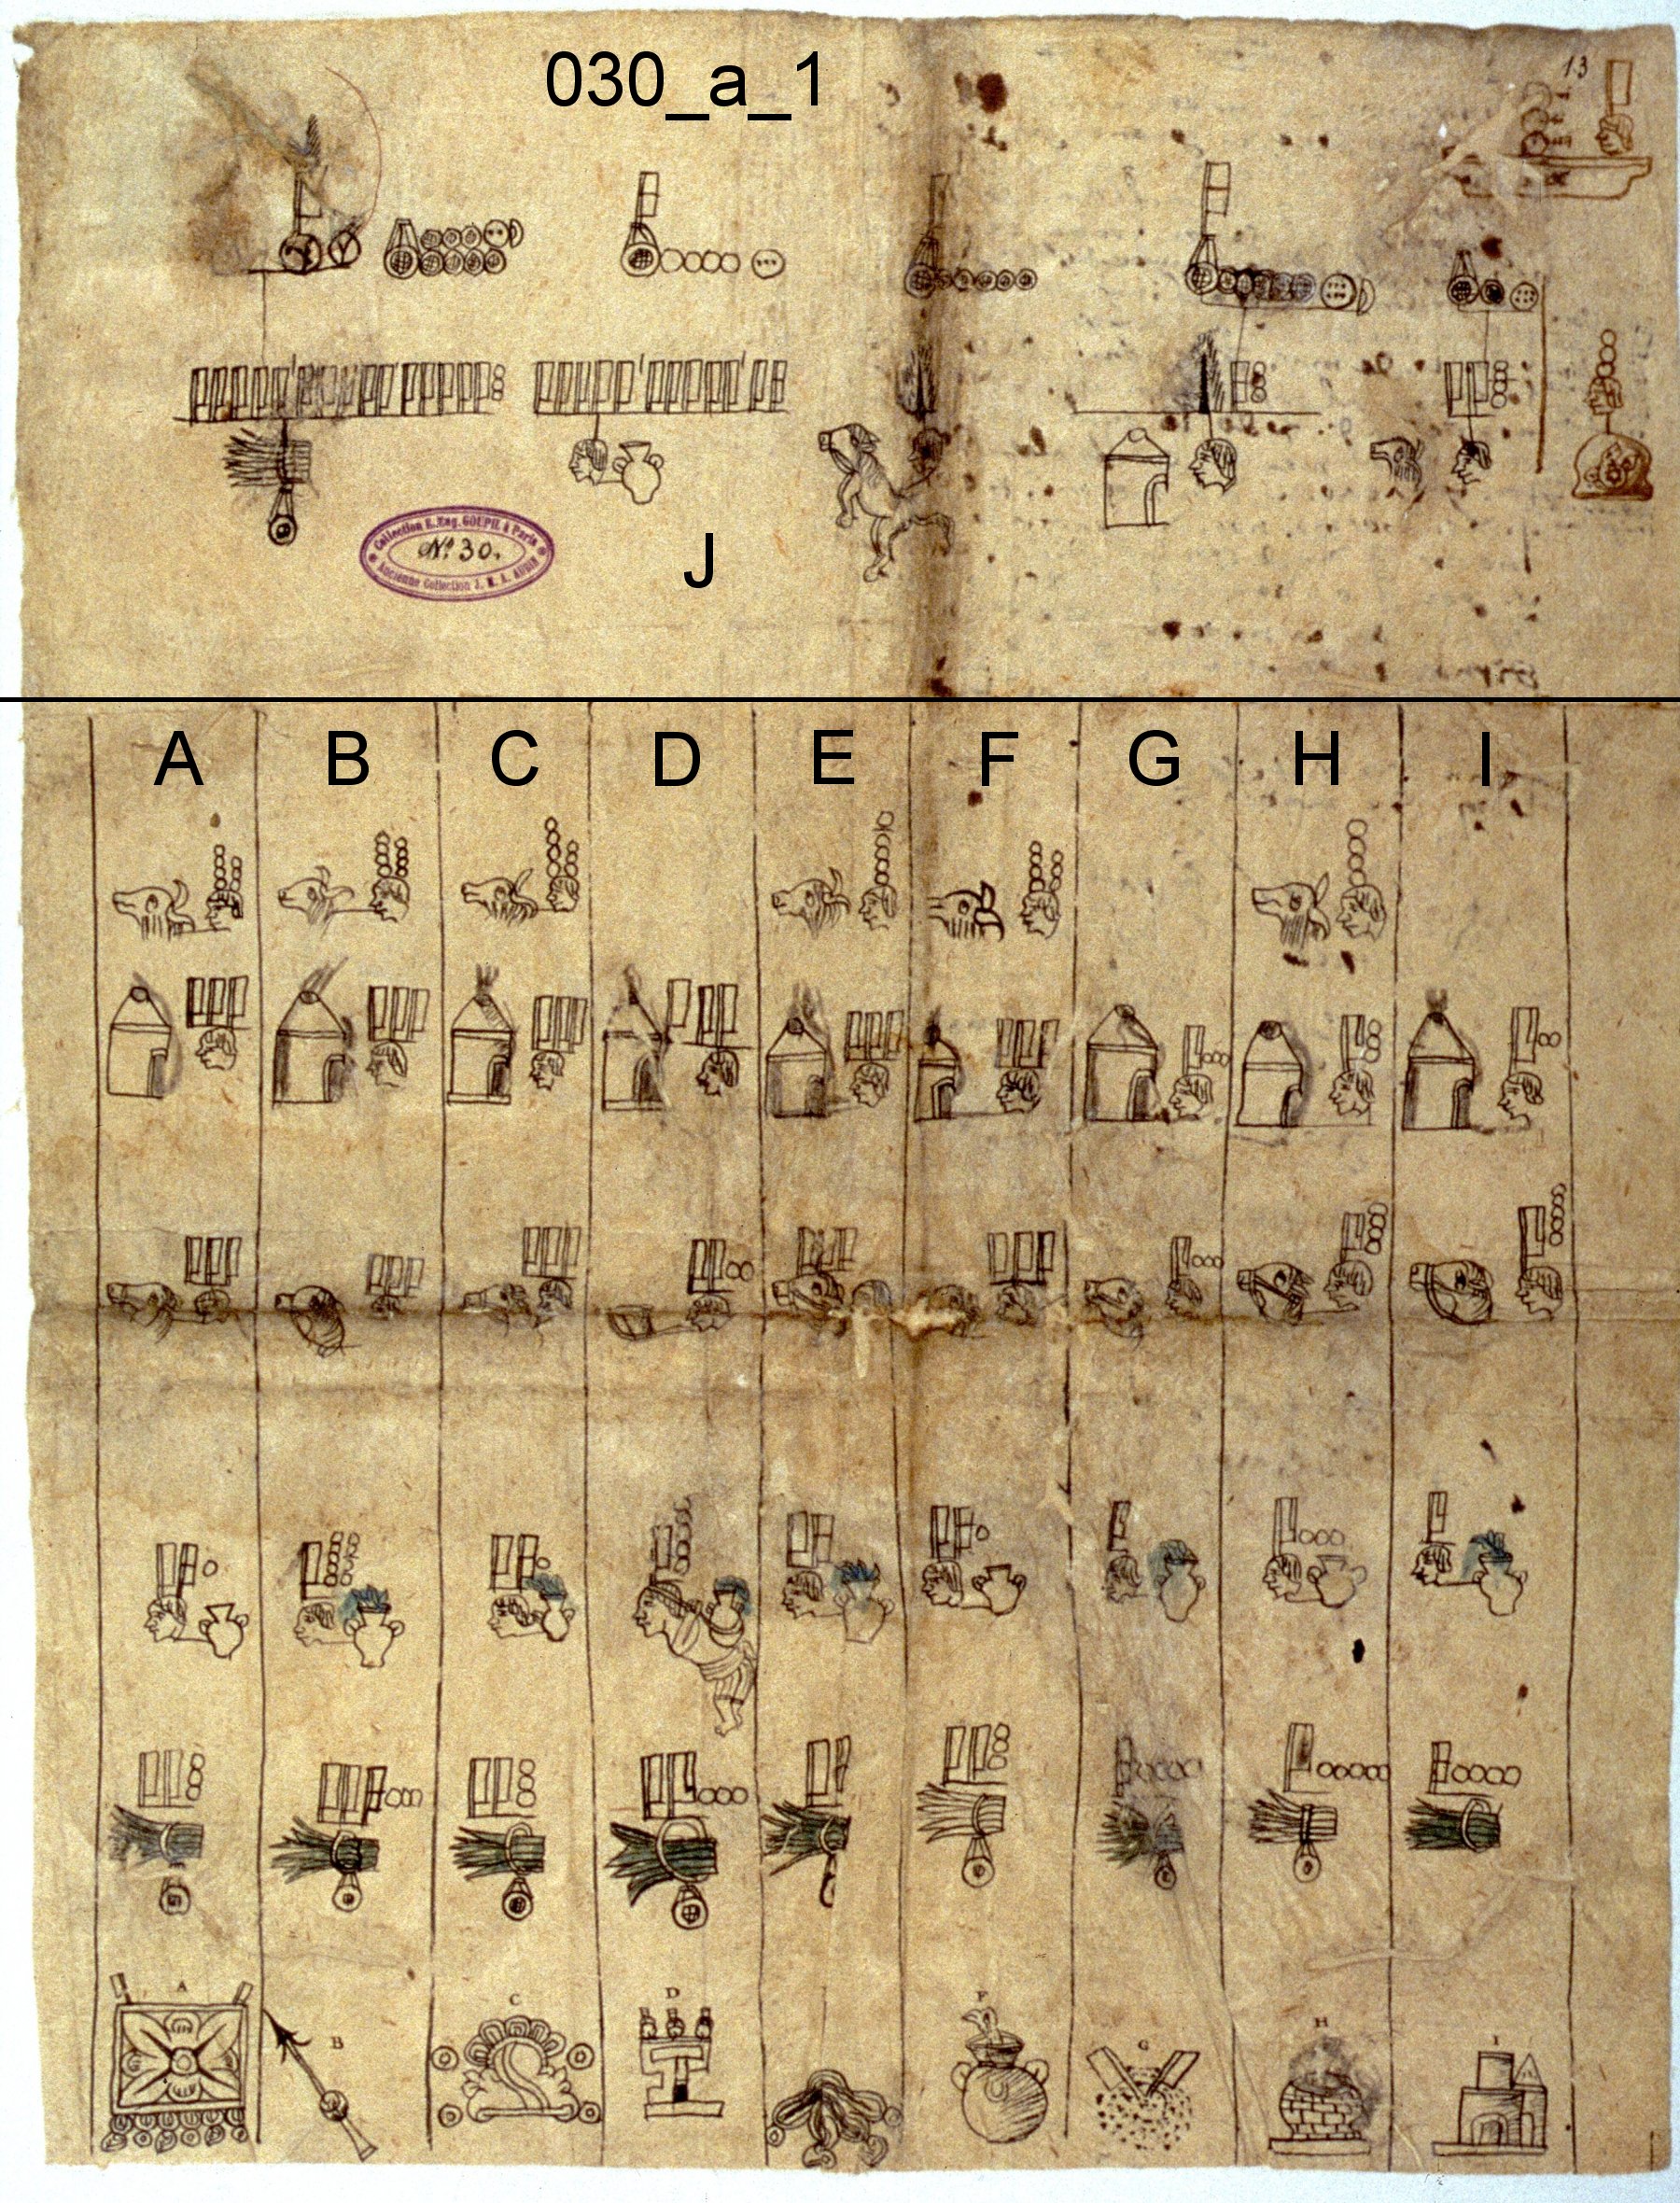 030_a_1
13
Collection E. Eug. GOUPIL à Paris
Nº 30.
Ancienne Collection J. M. A. AUBIN
J
A B C D E F G H I
A
B
C
D
F
G
H
I